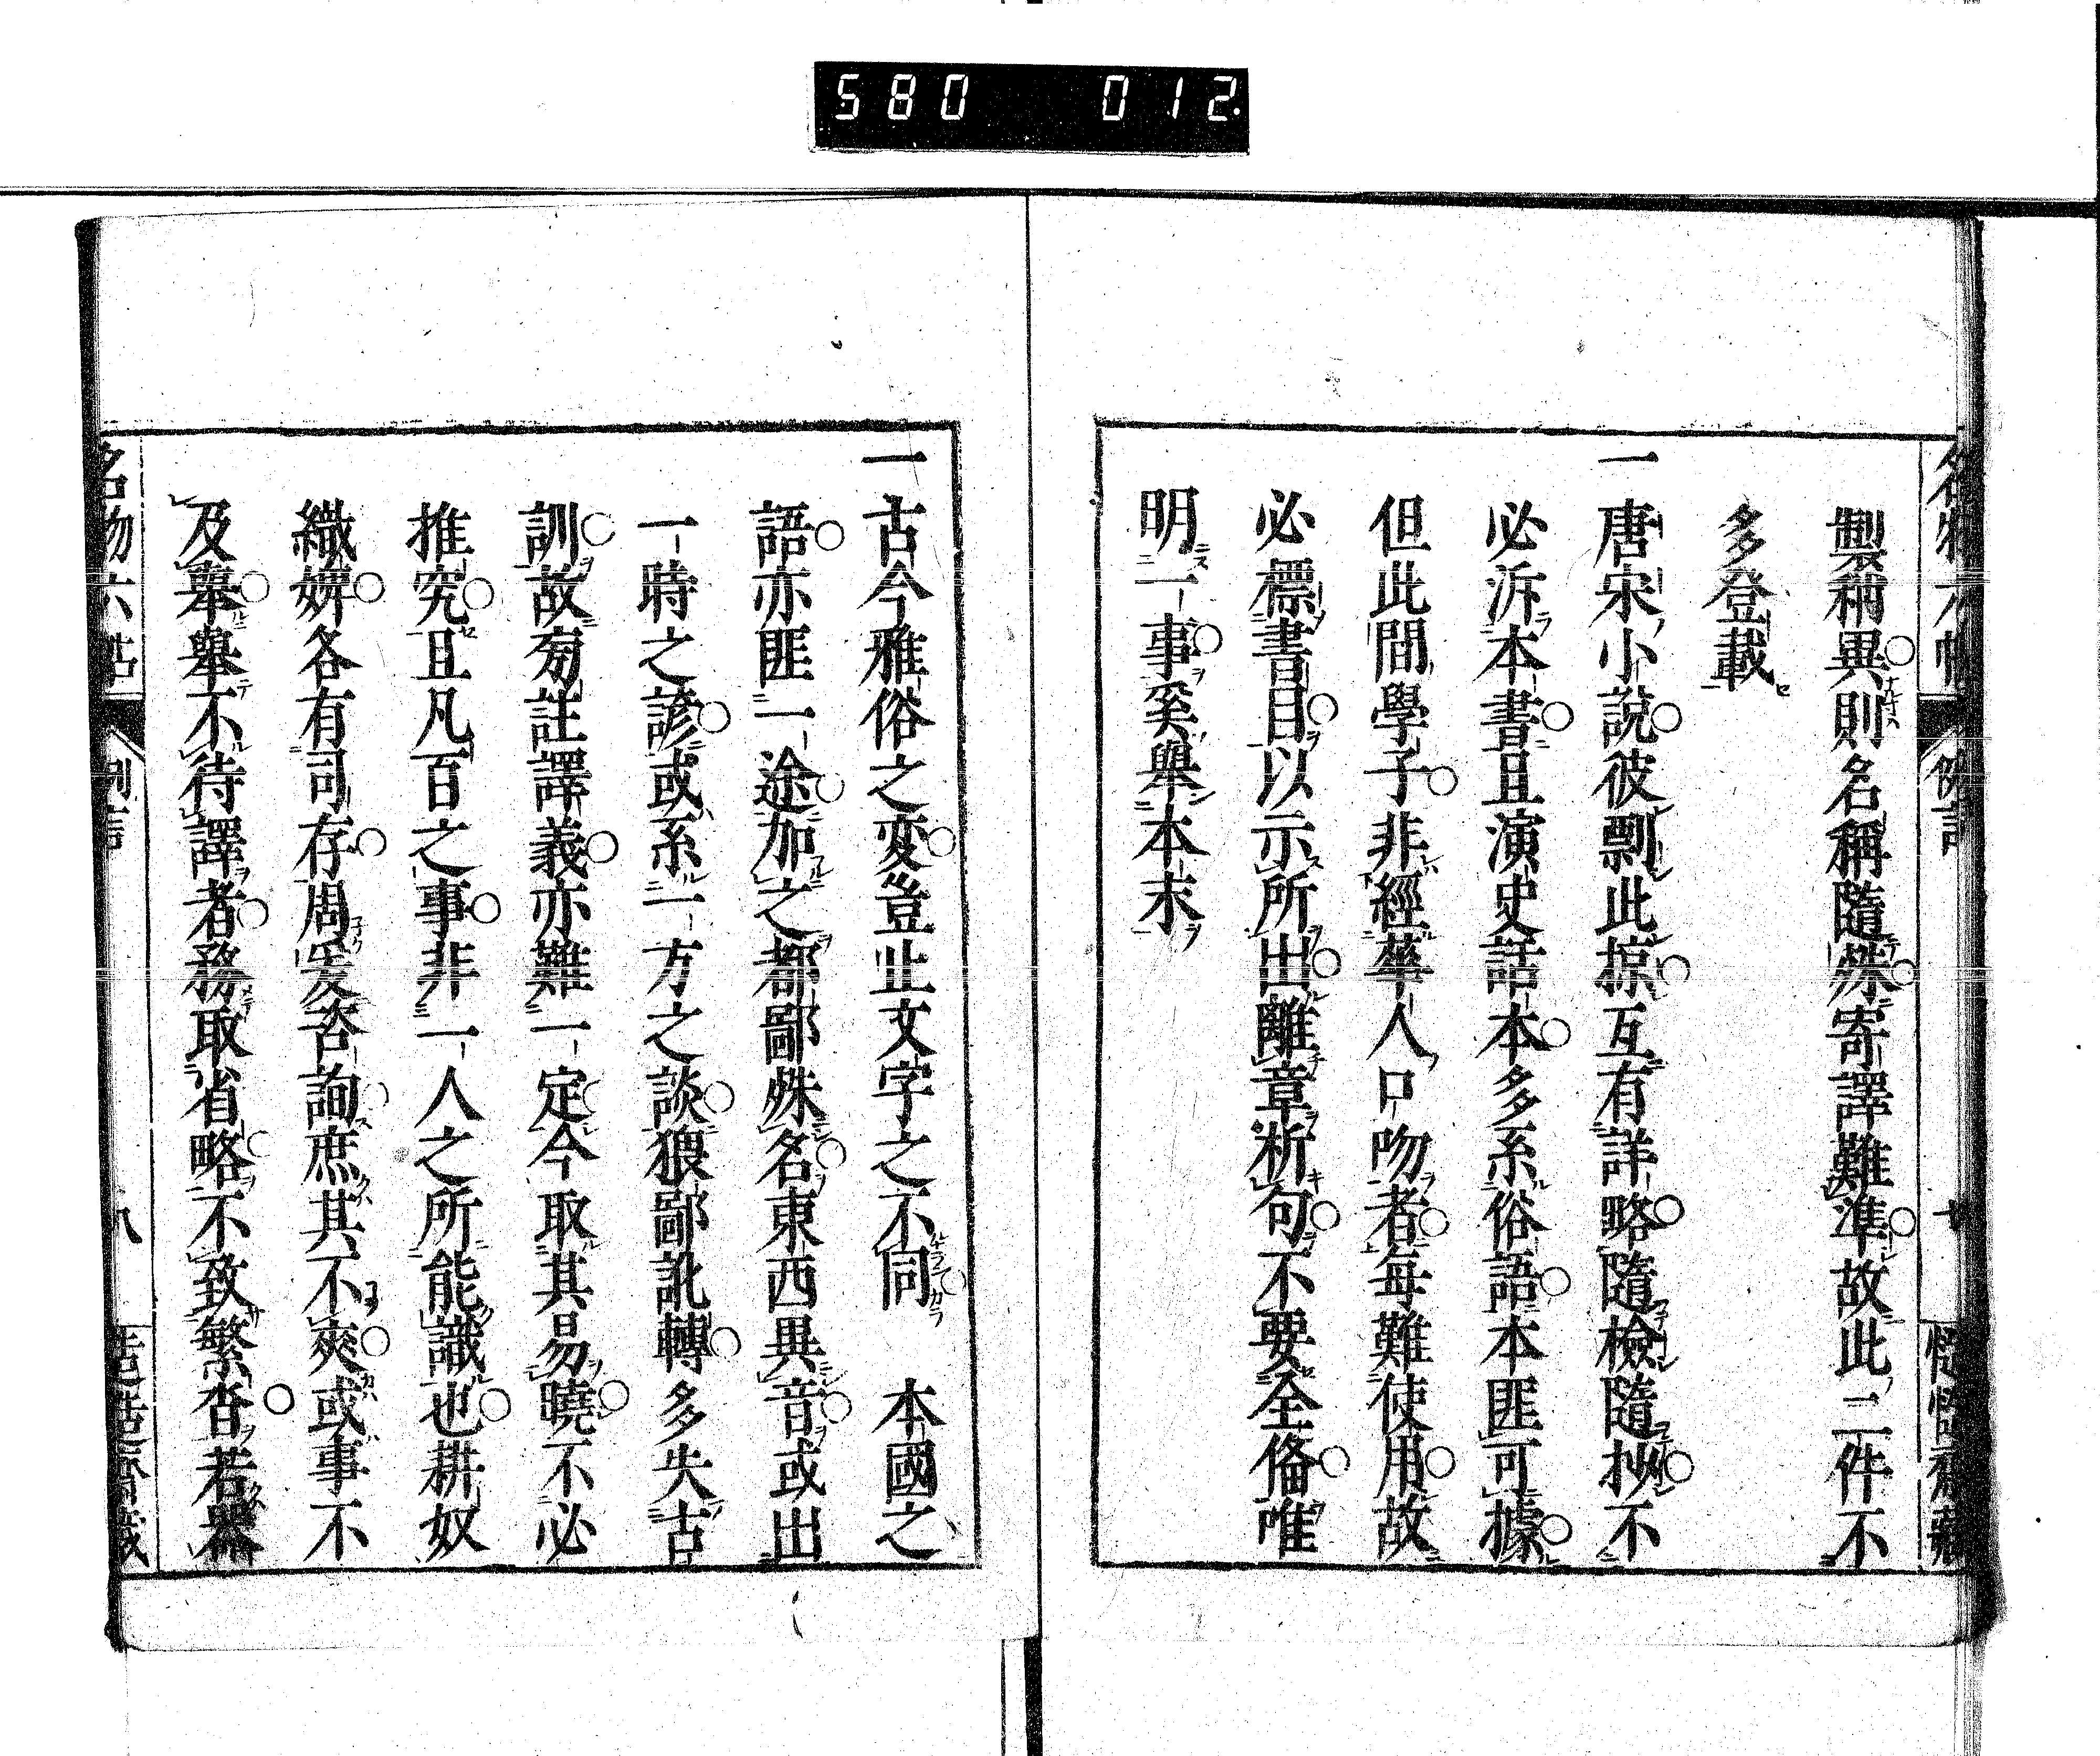 580 012
名物六帖 例言 七 恬憺齋藏
製稱異則名稱隨殊寄譯難準故此二件不
多登載
一唐宋小說彼剽此掠互有詳略隨檢隨抄不
必泝本書且演史話本多系俗語本匪可據
但此間學子非經華人口吻者每難使用故
必標書目以示所出離章析句不要全備唯
明一事奚舉本末
一古今雅俗之変豈止文字之不同 本國之
語亦匪一途加之都鄙殊名東西異音或出
一時之諺或系一方之談猥鄙訛轉多失古
訓故旁註譯義亦難一定今取其易曉不必
推究且凡百之事非一人之所能識也耕奴
織婢各有司存周爰咨詢庶其不爽或事不
及舉舉不待譯者務取省略不致繁沓若器
名物六帖 例言 八